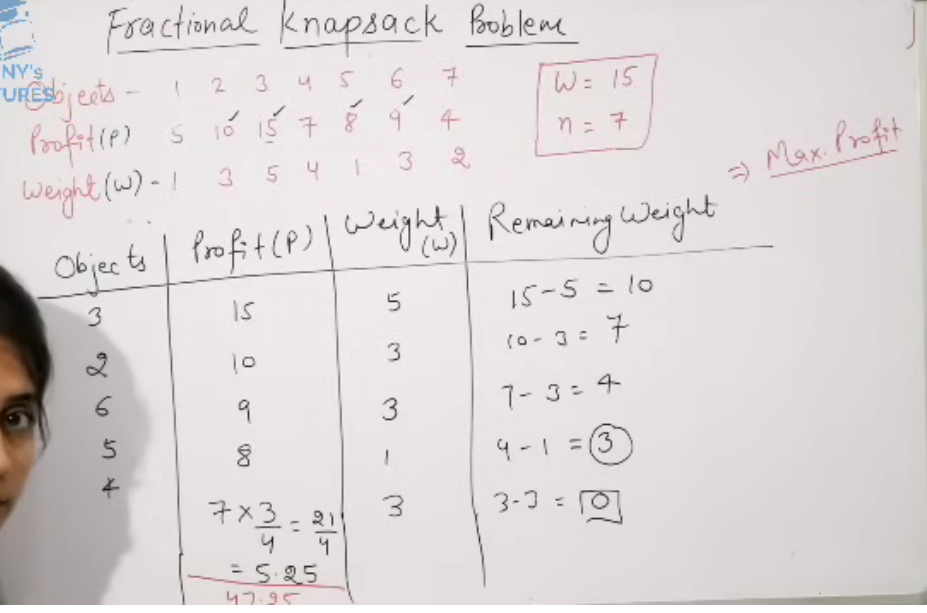 Fractional Knapsack Boblem
NY's
URES
Objects - 1 2 3 4 5 6 7
Profit(P) 5 10 15 7 8 9 4
Weight(W) - 1 3 5 4 1 3 2
W = 15
n = 7
⇒ Max. Profit
Objects Profit(P) Weight(W) Remaining Weight
3 15 5 15-5 = 10
2 10 3 10-3 = 7
6 9 3 7-3 = 4
5 8 1 4-1 = 3
4 7×3/4 = 21/4 3 3-3 = 0
= 5.25
47.25